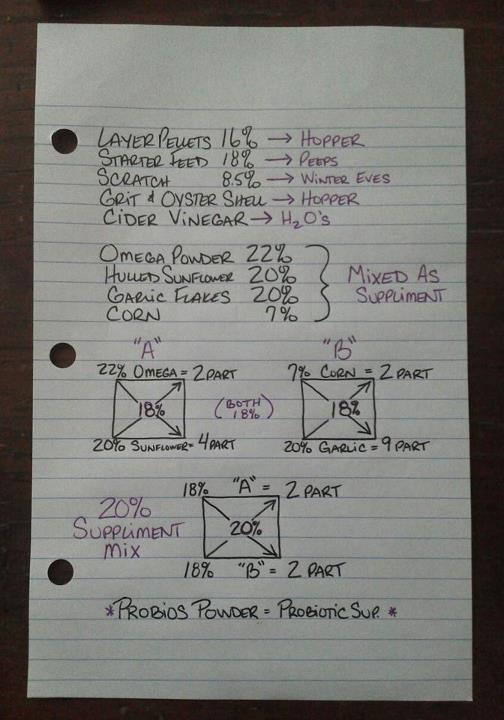 LAYER PELLETS 16% → HOPPER
STARTER FEED 18% → PEEPS
SCRATCH 8.5% → WINTER EVES
GRIT & OYSTER SHELL → HOPPER
CIDER VINEGAR → H₂O'S
OMEGA POWDER 22%
HULLED SUNFLOWER 20%
GARLIC FLAKES 20%
CORN 7%
MIXED AS
SUPPLIMENT
"A"
22% OMEGA = 2 PART
18%
20% SUNFLOWER = 4 PART
(BOTH
18%)
"B"
7% CORN = 2 PART
18%
20% GARLIC = 9 PART
20%
SUPPLIMENT
MIX
18% "A" = 2 PART
20%
18% "B" = 2 PART
*PROBIOS POWDER = PROBIOTIC SUP. *